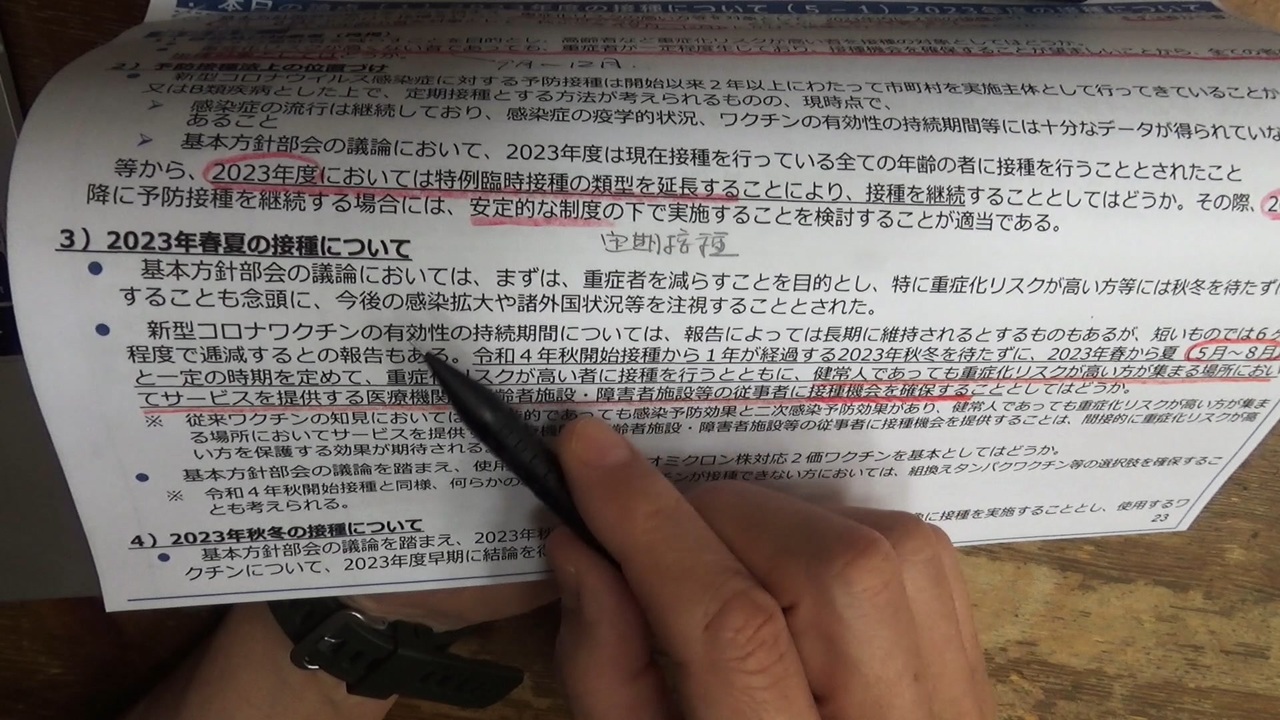 本日の
年度の接種について（5－1）2023年
ことを目的とし、高齢者など重症化リスクが高い者を接種の対象としてはどうか。
あっても、重症者が一定程度生じており、接種機会を確保することが望ましいことから、全ての
2）予防接種法上の位置づけ
9月－12月.
● 新型コロナウイルス感染症に対する予防接種は開始以来2年以上にわたって市町村を実施主体として行ってきていることか
又はB類疾病とした上で、定期接種とする方法が考えられるものの、現時点で、
➢ 感染症の流行は継続しており、感染症の疫学的状況、ワクチンの有効性の持続期間等には十分なデータが得られていな
あること
➢ 基本方針部会の議論において、2023年度は現在接種を行っている全ての年齢の者に接種を行うこととされたこと
等から、2023年度においては特例臨時接種の類型を延長することにより、接種を継続することとしてはどうか。その際、2
降に予防接種を継続する場合には、安定的な制度の下で実施することを検討することが適当である。
定期接種
3）2023年春夏の接種について
● 基本方針部会の議論においては、まずは、重症者を減らすことを目的とし、特に重症化リスクが高い方等には秋冬を待たず
することも念頭に、今後の感染拡大や諸外国状況等を注視することとされた。
● 新型コロナワクチンの有効性の持続期間については、報告によっては長期に維持されるとするものもあるが、短いものでは6
程度で逓減するとの報告もある。令和4年秋開始接種から1年が経過する2023年秋冬を待たずに、2023年春から夏（5月～8月
と一定の時期を定めて、重症化リスクが高い者に接種を行うとともに、健常人であっても重症化リスクが高い方が集まる場所におい
てサービスを提供する医療機関 齢者施設・障害者施設等の従事者に接種機会を確保することとしてはどうか。
※ 従来ワクチンの知見においては 的であっても感染予防効果と二次感染予防効果があり、健常人であっても重症化リスクが高い方が集ま
る場所においてサービスを提供 機関 齢者施設・障害者施設等の従事者に接種機会を提供することは、間接的に重症化リスクが高
い方を保護する効果が期待される
● 基本方針部会の議論を踏まえ、使用 オミクロン株対応2価ワクチンを基本としてはどうか。
※ 令和4年秋開始接種と同様、何らかの ンが接種できない方においては、組換えタンパクワクチン等の選択肢を確保するこ
とも考えられる。
4）2023年秋冬の接種について
● 基本方針部会の議論を踏まえ、2023年秋 に接種を実施することとし、使用するワ
クチンについて、2023年度早期に結論を得
23